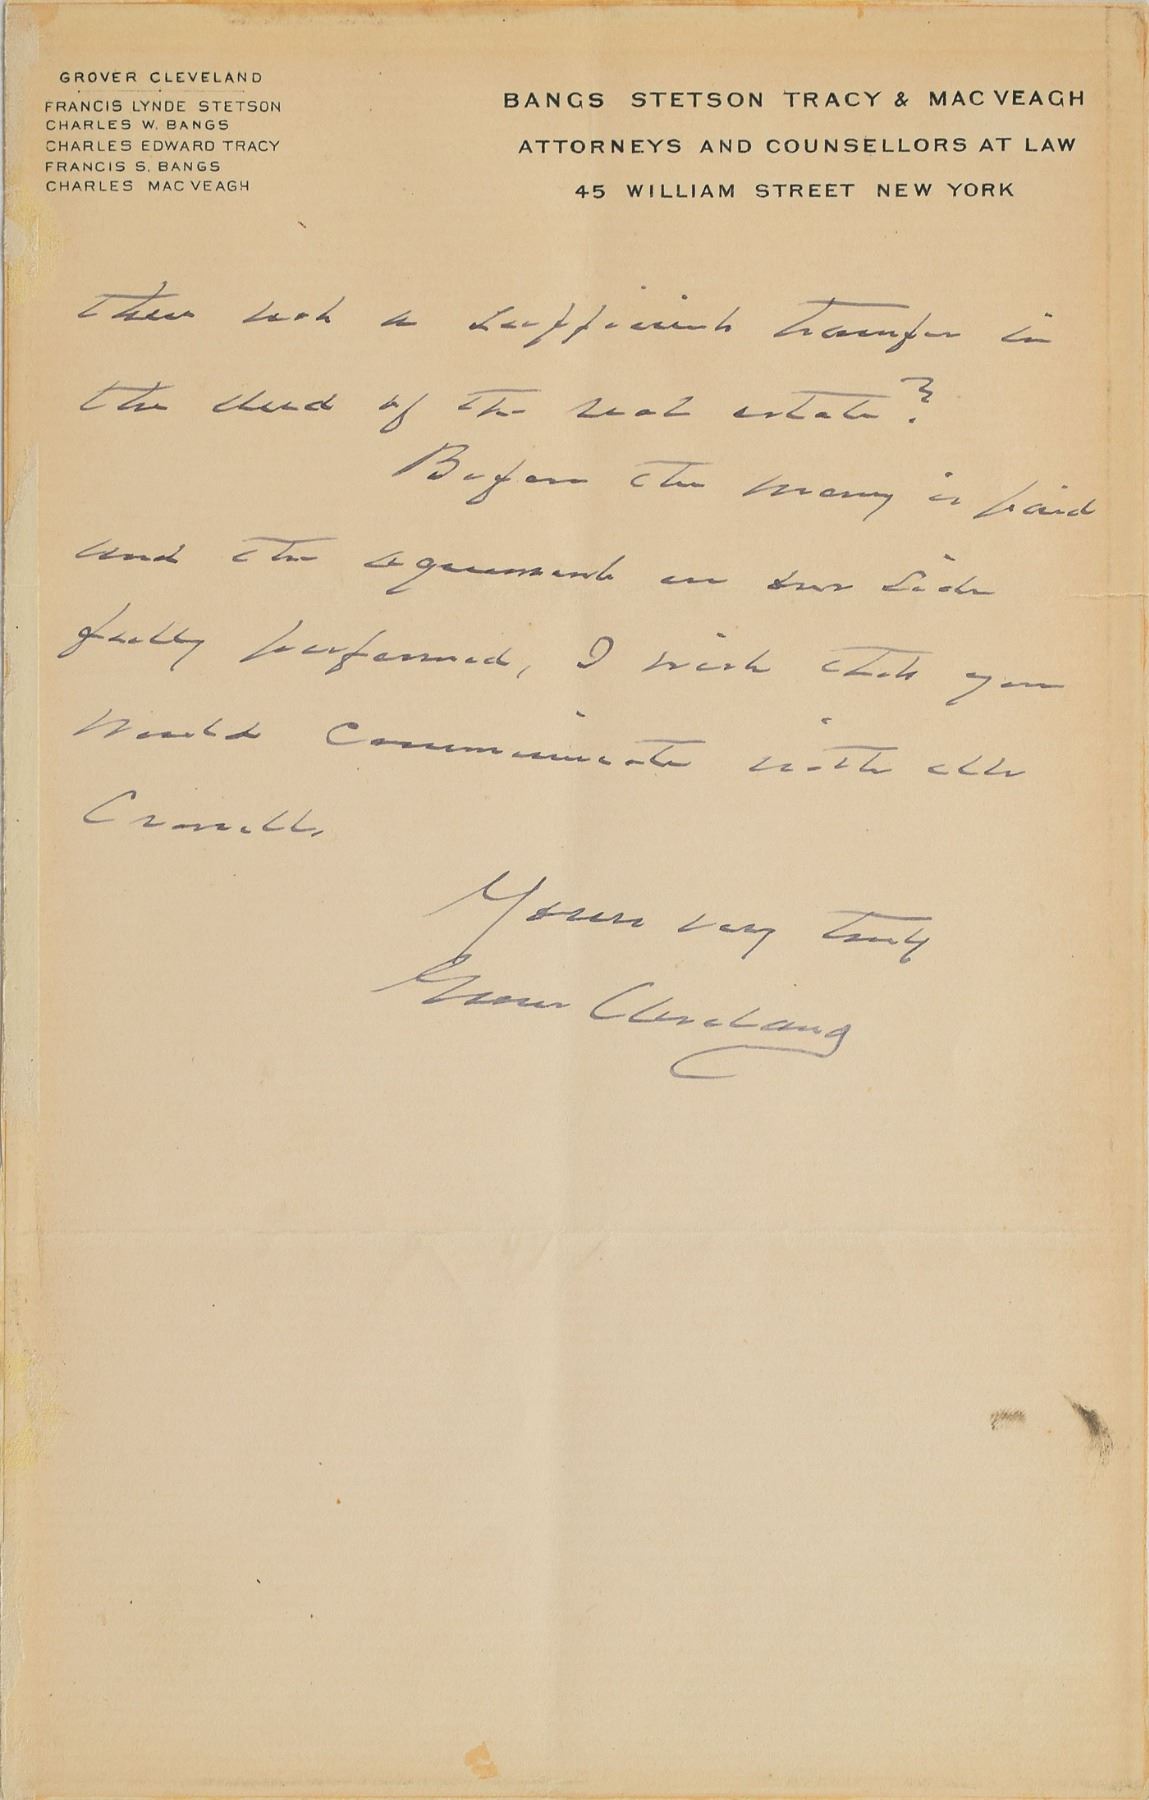 GROVER CLEVELAND
FRANCIS LYNDE STETSON
CHARLES W. BANGS
CHARLES EDWARD TRACY
FRANCIS S. BANGS
CHARLES MAC VEAGH
BANGS STETSON TRACY & MAC VEAGH
ATTORNEYS AND COUNSELLORS AT LAW
45 WILLIAM STREET NEW YORK
there not a sufficient transfer in
the deed of the real estate?
Before the money is paid
and the agreement on our side
fully performed, I wish that you
would communicate with
Yours very truly
Grover Cleveland